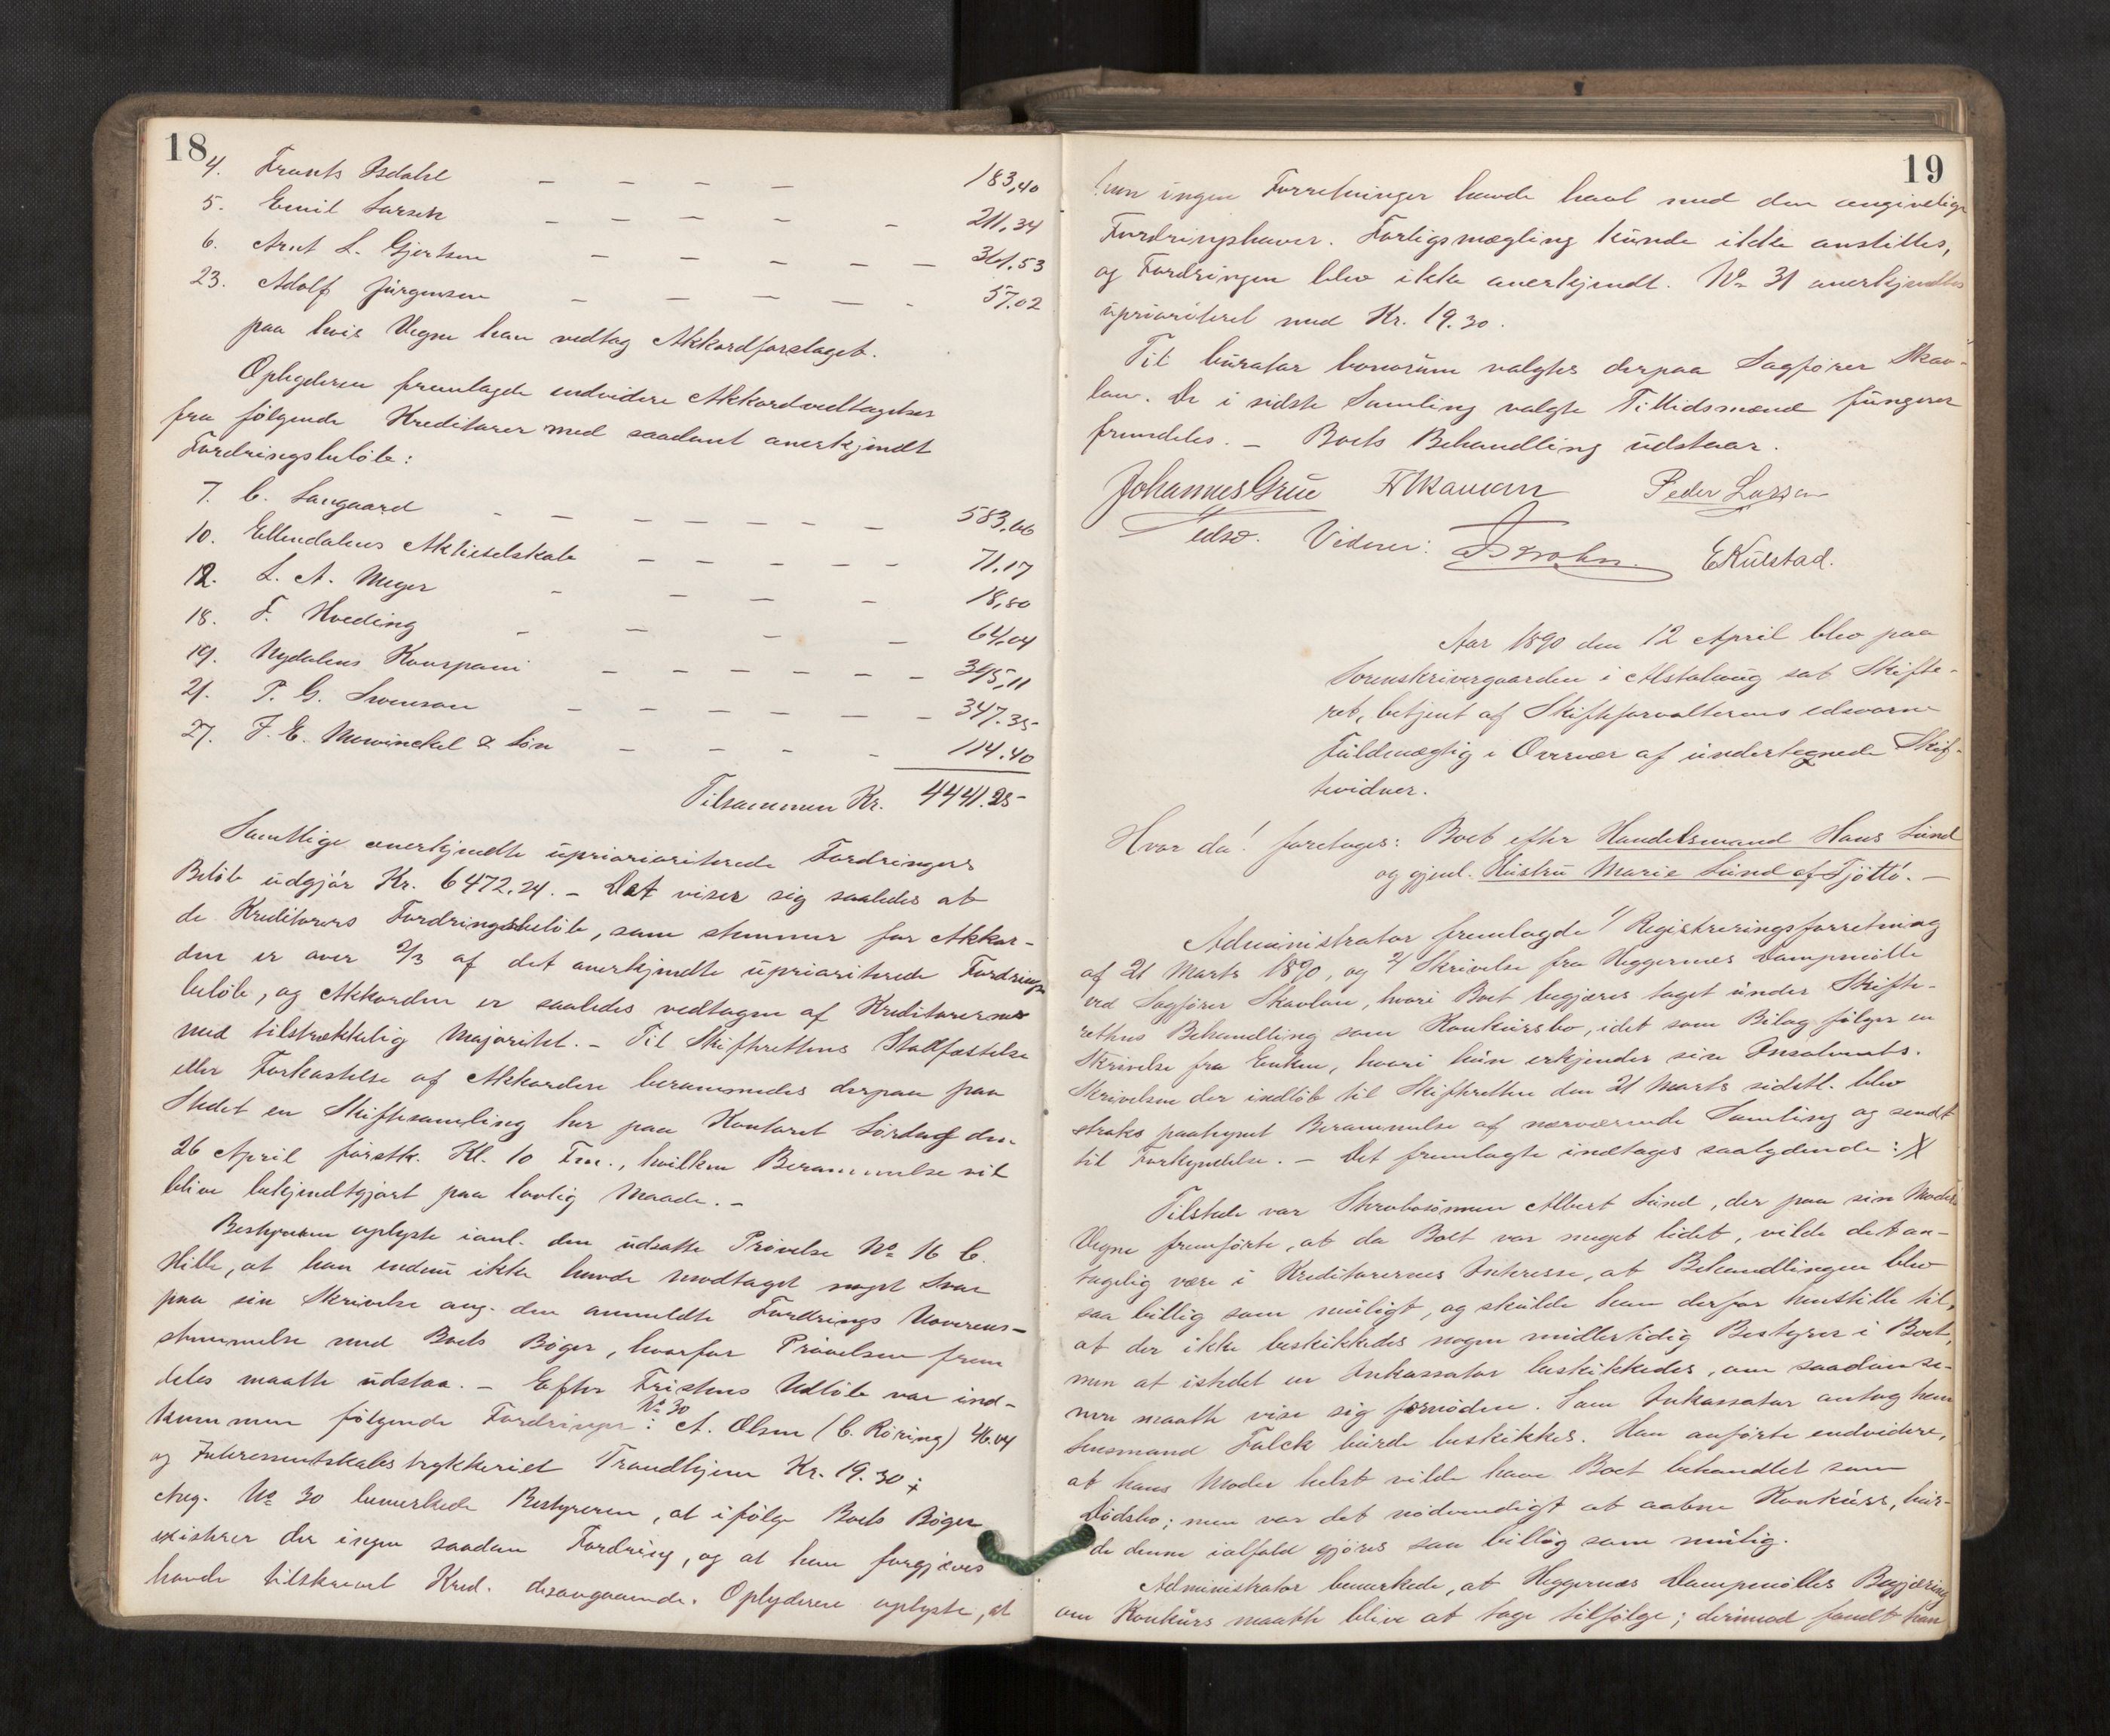 18
4. Frants Isdahl – – – – 183,40
5. Emil Larsen – – – – – 211,34
6. Arnt L. Gjertsen – – – – – 361,53
23. Adolf Jürgensen – – – – - 57.02
paa hvis Vegne han vedtog Akkordforslaget.
Opbyderen fremlagde endvidere Akkordvedtagelser
fra følgende Kreditorer med saadant anerkjendt
Fordringsbeløb:
7. C. Langaard – – – – – – – 583,66
10. Ellendalens Aktieselskab – – – – – 71.17
12. L. A. Meyer – – – – 18,80
18. F. Hveding – – – – 64,04
19. Nydalens Kompani – – – – – – 345,11
21. P. G. Svenson – – – – – – 347.35
27. J. E. Mowinckel & Søn – – – – 114.40
Tilsammen Kr. 4441.25
Samtlige anerkjendte uprioriterede Fordringers
Beløb udgjør Kr. 6472.24. – Det viser sig saaledes at
de Kreditorers Fordringsbeløb, som stemmer for Akkor-
den er over 2/3 af det anerkjendte uprioriterede Fordrings
beløb, og Akkorden er saaledes vedtagen af Kreditorerne
med tilstrækkelig Majoritet. – Til Skifterettens Stadfæstelse
eller Forkastelse af Akkorden berammedes derpaa paa
Stedet en Skiftesamling her paa Kontoret Lørdag den
26 April førstk. Kl. 10 Fm., hvilken Berammelse vil
blive bekjendtgjort paa lovlig Maade. –
Bestyreren oplyste ianl. den udsatte Prøvelse No 16 C.
Hille, at han endnu ikke havde modtaget noget Svar
paa sin Skrivelse ang. den anmeldte Fordrings Uoverens-
stemmelse med Boets Bøger, hvorfor Prøvelsen frem
deles maatte udstaa. – Efter Fristens Udløb var ind-
kommen følgende Fordringer: No 30 A. Olsen (C. Röring) 46.04
og Interessentskabstrykkeriet Trondhjem Kr. 19.30
Ang. No 30 bemærkede Bestyreren, at ifølge Boets Bøger
existerer der ingen saadan Fordring, og at han forgjæves
havde tilskrevet Kred. desangaaende. Opbyderen oplyste, at
19
han ingen Forretninger havde havt med den angivelige
Fordringshaver. Forligsmægling kunde ikke anstilles,
og Fordringen blev ikke anerkjendt. No 31 anerkjendtes
uprioriteret med Kr. 19.30.
Til curator bonorum valgtes derpaa Sagfører Skav-
lan. De i sidste Samling valgte Tillidsmænd fungerer
fremdeles. – Boets Behandling udstaar.
Johannes Grüe Peder Larsen
edsv. Vidner: EKulstad.
Aar 1890 den 12 April blev paa
Sorenskrivergaarden i Alstahaug sat Skifte-
ret, betjent af Skifteforvalterens edsvorne
Fuldmægtig i Overvær af undertegnede Skif-
tevidner.
Hvor da! foretoges: Boet efter Handelsmand Hans Lund
og gjenl. Hustru Marie Lund af Tjøttø. –
Administrator fremlagde 1/ Registreringsforretning
af 21 Marts 1890, og 2/ Skrivelse fra Heggernes Dampmølle
ved Sagfører Skavlan, hvori Boet begjæres taget under Skifte-
rettens Behandling som Konkursbo, idet som Bilag følger en
Skrivelse fra Enken, hvori hun erkjender sin Insolvents.
Skrivelsen der indløb til Skifteretten den 21 Marts sidstl. blev
straks paategnet Berammelse af nærværende Samling og sendt
til Forkyndelse. – Det fremlagte indtages saalydende:
Tilstede var Stervbosønnen Albert Lund, der paa sin Moders
Vegne fremførte, at da Boet var meget lidet, vilde det an-
tagelig være i Kreditorernes Interesse, at Behandlingen blev
saa billig som muligt, og skulde han derfor henstille til,
at der ikke beskikkedes nogen midlertidig Bestyrer i Boet,
men at istedet en Inkassator beskikkedes, om saadan se-
nere maatte vise sig fornøden. Som Inkassator antog han
Lensmand Falck burde beskikkes. Han anførte endvidere,
at hans Moder helst vilde have Boet behandlet som
Dødsbo; men var det nødvendigt at aabne Konkurs, bur-
de denne ialfald gjøres saa billig som mulig.
Administrator bemærkede, at Heggernæs Dampmølles Begjæring
om Konkurs maatte blive at tage tilfølge; derimod fandt han